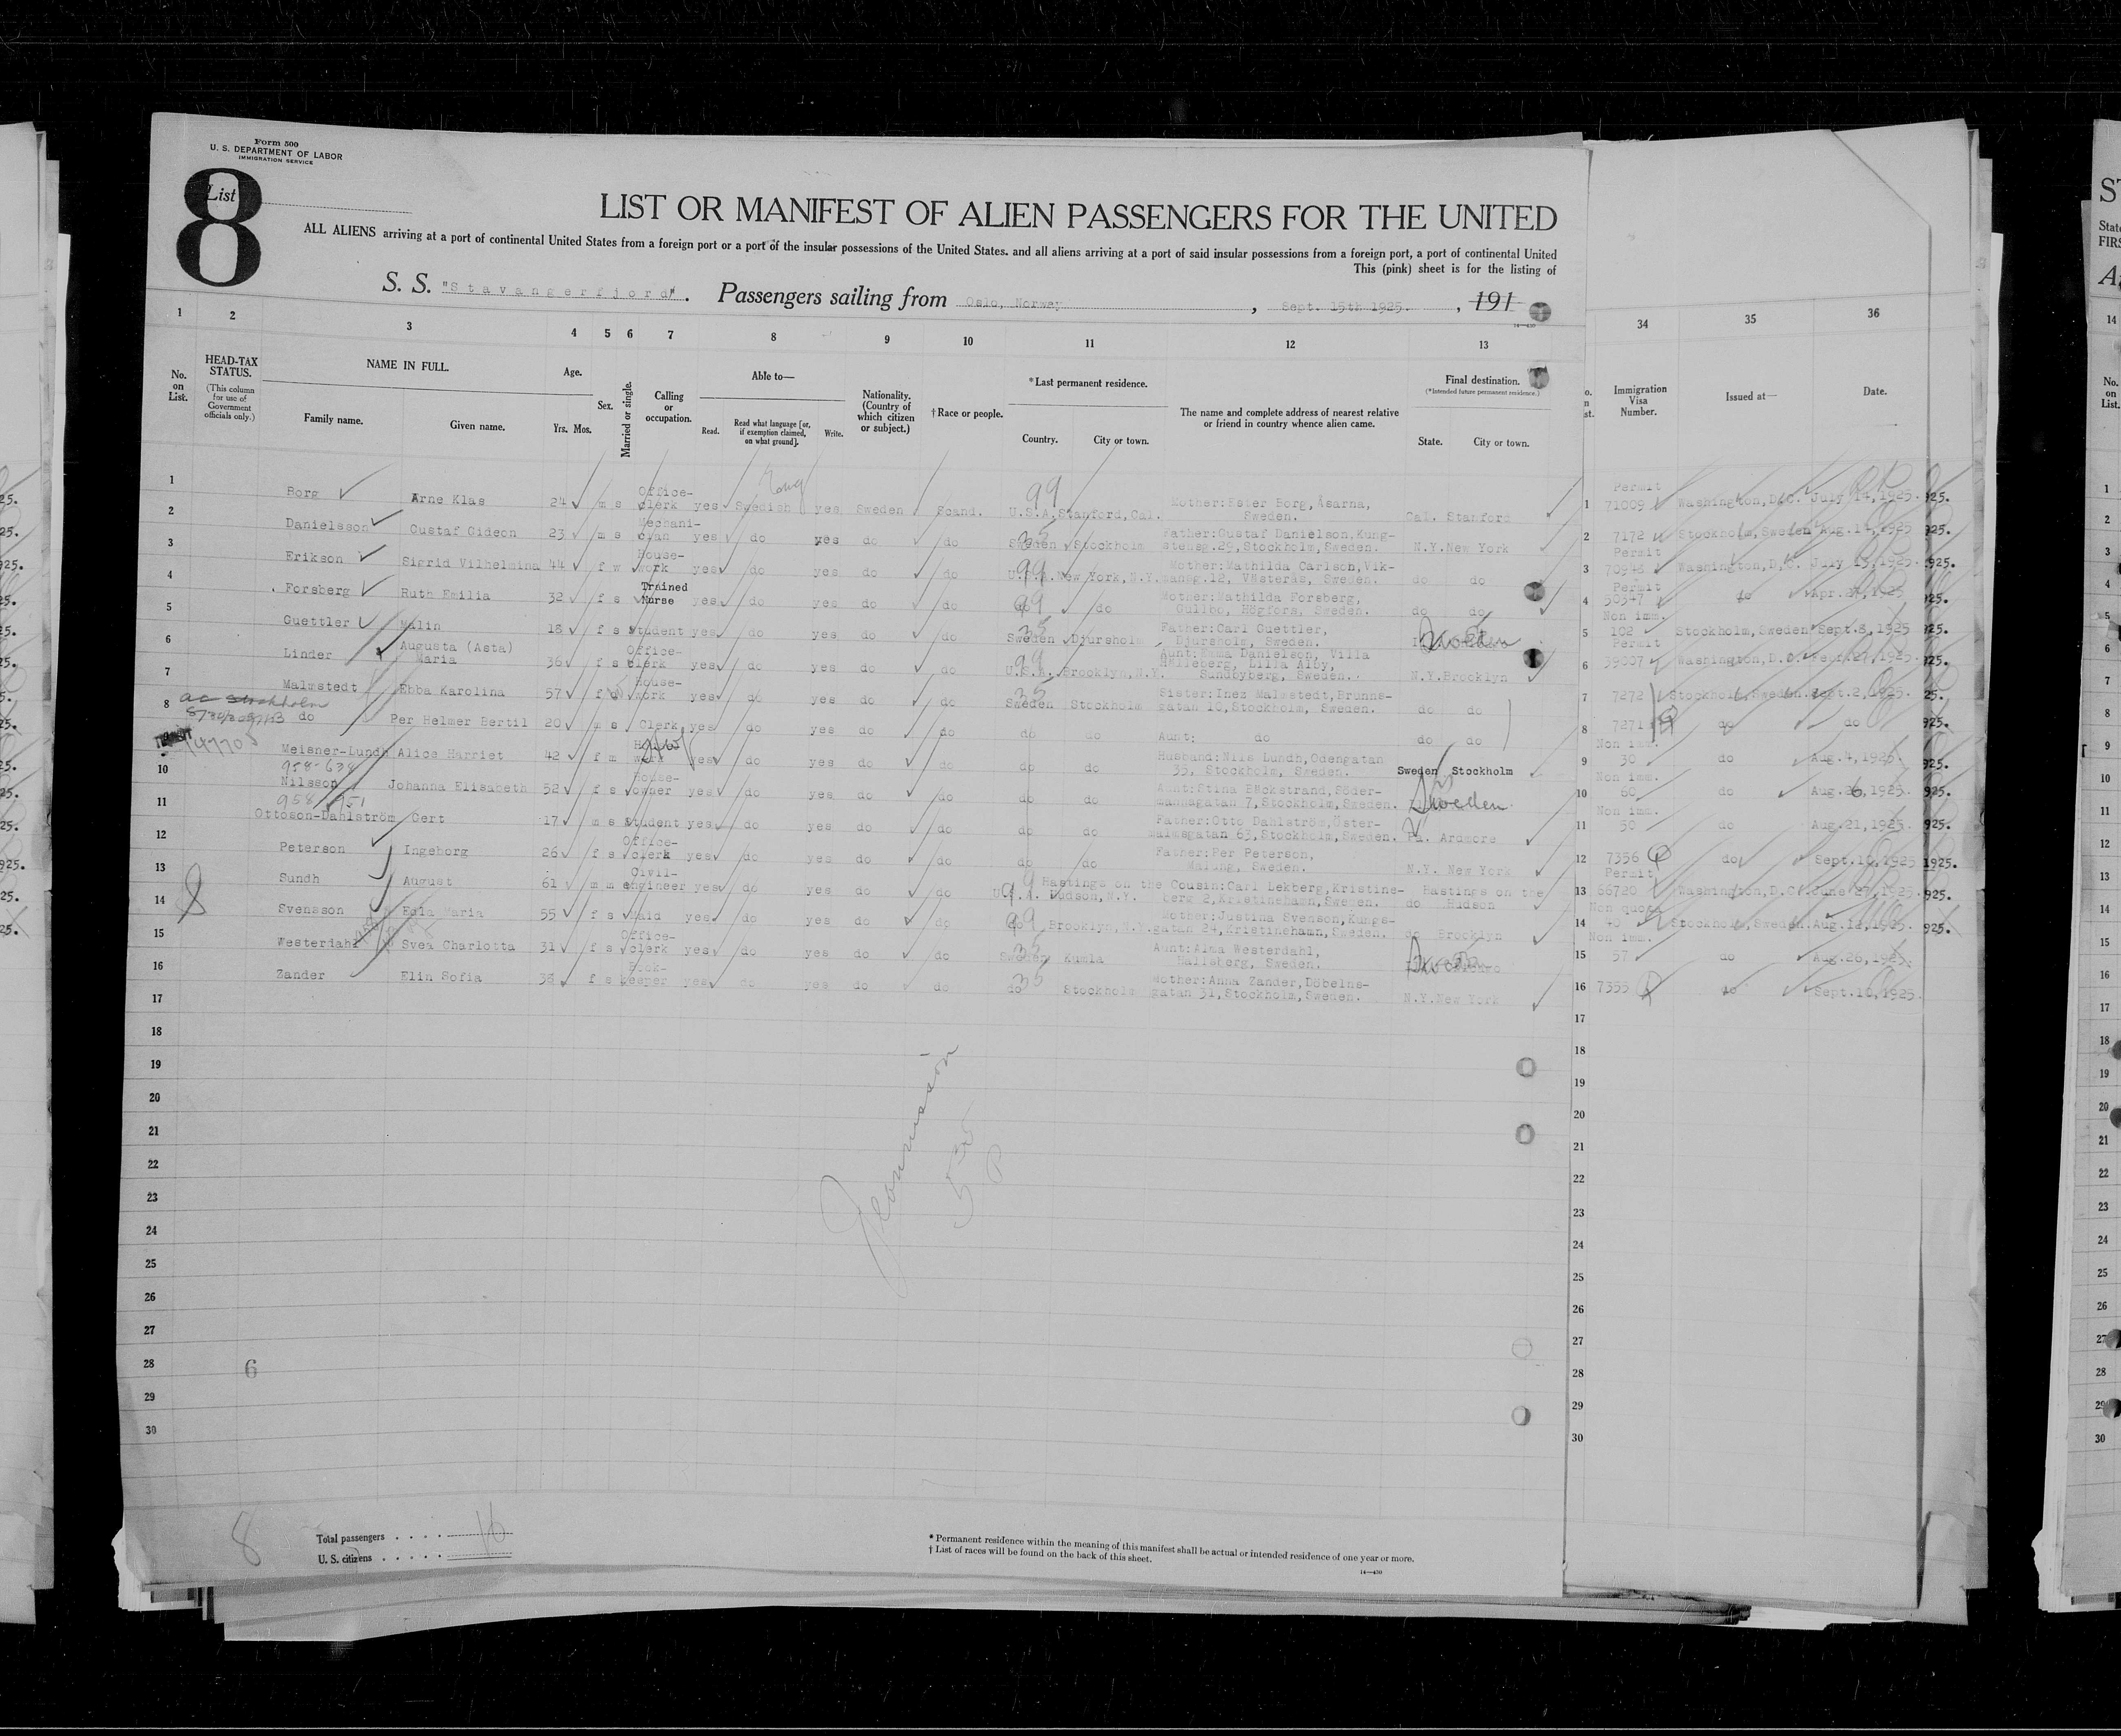 Form 500
U. S. DEPARTMENT OF LABOR
IMMIGRATION SERVICE
List 8
LIST OR MANIFEST OF ALIEN PASSENGERS FOR THE UNITED
ALL ALIENS arriving at a port of continental United States from a foreign port or a port of the insular possessions of the United States. and all aliens arriving at a port of said insular possessions from a foreign port, a port of continental United
This (pink) sheet is for the listing of
S. S. "Stavangerfjord". Passengers sailing from Oslo, Norway, Sept. 15th 1925., 191
1 2 3 4 5 6 7 8 9 10 11 12 13 34 35 36
No. on List.
HEAD-TAX STATUS.
(This column for use of Government officials only.)
NAME IN FULL.
Family name. Given name.
Age.
Yrs. Mos.
Sex.
Married or single.
Calling or occupation.
Able to—
Read. Read what language [or, if exemption claimed, on what ground]. Write.
Nationality. (Country of which citizen or subject.)
†Race or people.
*Last permanent residence.
Country. City or town.
The name and complete address of nearest relative or friend in country whence alien came.
Final destination.
(*Intended future permanent residence.)
State. City or town.
Immigration Visa Number.
Issued at—
Date.
1 Borg Arne Klas 24 m s Office-clerk yes Swedish yes Sweden Scand. U.S.A. Stanford, Cal. Mother: Ester Borg, Åsarna, Sweden. Cal. Stanford 1 Permit 71009 Washington, D.C. July 14, 1925.
2 Danielsson Gustaf Gideon 23 m s Mechani-cian yes do yes do do Sweden Stockholm Father: Gustaf Danielson, Kung-stensg. 29, Stockholm, Sweden. N.Y. New York 2 7172 Stockholm, Sweden Aug. 14, 1925
3 Erikson Sigrid Vilhelmina 44 f w House-work yes do yes do do U.S.A. New York, N.Y. Mother: Mathilda Carlson, Vik-mansg. 12, Västerås, Sweden. do do 3 Permit Washington, D.C. July 1925
4 Forsberg Ruth Emilia 32 f s Trained Nurse yes do yes do do do do Mother: Mathilda Forsberg, Gulibo, Högfors, Sweden. do do 4 Permit 50347 do Apr.
5 Guettler Malin 18 f s Student yes do yes do do Sweden Djursholm Father: Carl Guettler, Djursholm, Sweden. Sweden 5 Non imm. 102 Stockholm, Sweden Sept. 8, 1925
6 Linder Augusta (Asta) Maria 36 f s Office-clerk yes do yes do do U.S.A. Brooklyn, N.Y. Aunt: Emma Danielson, Villa Hälleberg, Lilla Alby, Sundbyberg, Sweden. N.Y. Brooklyn 6 Permit 59007 Washington, D.C. 1925
7 Malmstedt Ebba Karolina 57 f d House-work yes do yes do do Sweden Stockholm Sister: Inez Malmstedt, Brunns-gatan 10, Stockholm, Sweden. do do 7 7272 Stockholm, Sweden. Sept. 2, 1925.
8 do Per Helmer Bertil 20 m s Clerk yes do yes do do do do Aunt: do do do 8 7271 do do
9 Meisner-Lundh Alice Harriet 42 f m work yes do yes do do do do Husband: Nils Lundh, Odengatan 35, Stockholm, Sweden. Sweden Stockholm 9 Non imm. 30 do Aug. 4, 1925.
958-638
10 Nilsson Johanna Elisabeth 52 f s House-owner yes do yes do do do do Aunt: Stina Bäckstrand, Söder-mannagatan 7, Stockholm, Sweden. Sweden 10 Non imm. 60 do Aug. 26, 1925.
958/951
11 Ottoson-Dahlström Gert 17 m s Student yes do yes do do do do Father: Otto Dahlström, Öster-malmsgatan 63, Stockholm, Sweden. Pa. Ardmore 11 Non imm. 50 do Aug. 21, 1925.
12 Peterson Ingeborg 26 f s Office-clerk yes do yes do do do do Father: Per Peterson, Malung, Sweden. N.Y. New York 12 7356 do Sept. 10, 1925
13 Sundh August 61 m m Civil-engineer yes do yes do do U.S.A. Hastings on the Hudson, N.Y. Cousin: Carl Lekberg, Kristine-berg 2, Kristinehamn, Sweden. do Hastings on the Hudson 13 Permit 66720 Washington, D.C. June 27, 1925.
14 Svensson Maria 55 f s Maid yes do yes do do do Brooklyn, N.Y. Mother: Justina Svenson, Kungs-gatan 24, Kristinehamn, Sweden. do Brooklyn 14 Non quota 40 Stockholm, Sweden. Aug. 12, 1925.
15 Westerdahl Svea Charlotta 31 f s Office-clerk yes do yes do do Sweden Kumla Aunt: Alma Westerdahl, Hallsberg, Sweden. Sweden 15 Non imm. 57 do Aug. 26, 1925.
16 Zander Elin Sofia 38 f s Book-keeper yes do yes do do do Stockholm Mother: Anna Zander, Döbelns-gatan 31, Stockholm, Sweden. N.Y. New York 16 7355 do Sept. 10, 1925.
17
18
19
20
21
22
23
24
25
26
27
28 6
29
30
8
Total passengers . . . . 16
U. S. citizens . . . . .
* Permanent residence within the meaning of this manifest shall be actual or intended residence of one year or more.
† List of races will be found on the back of this sheet.
14—430